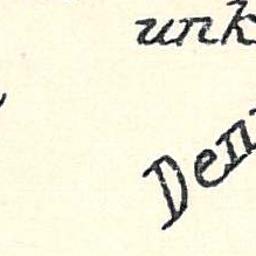 urk
Den